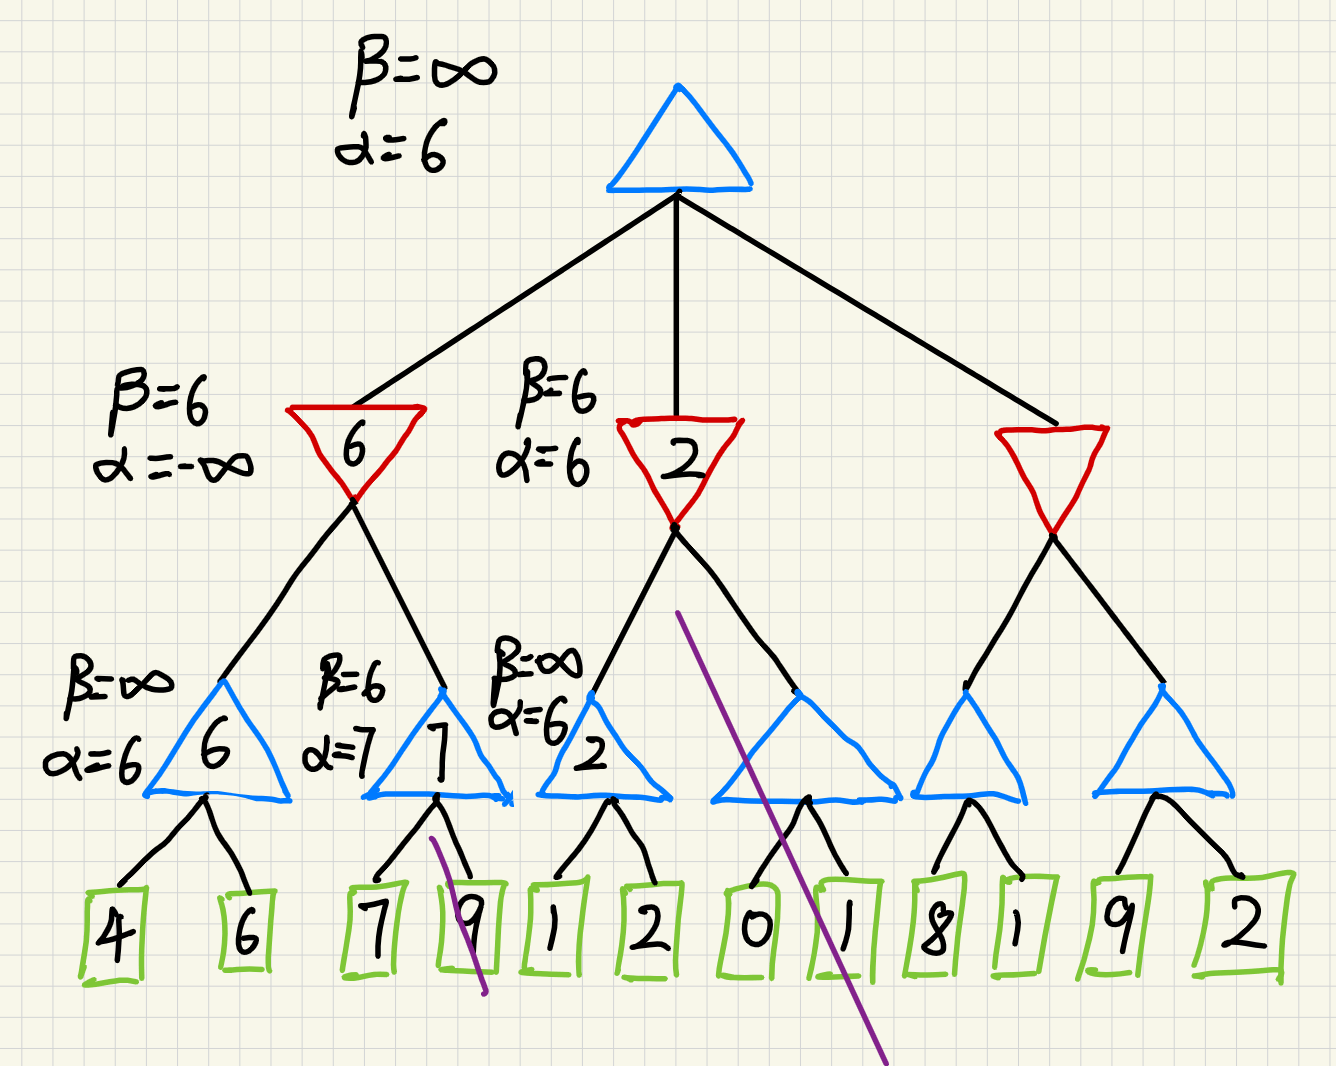 β=∞
α=6
β=6
α=-∞
6
β=6
α=6
2
β=∞
α=6
6
β=6
α=7
7
β=∞
α=6
2
4
6
7
9
1
2
0
1
8
1
9
2